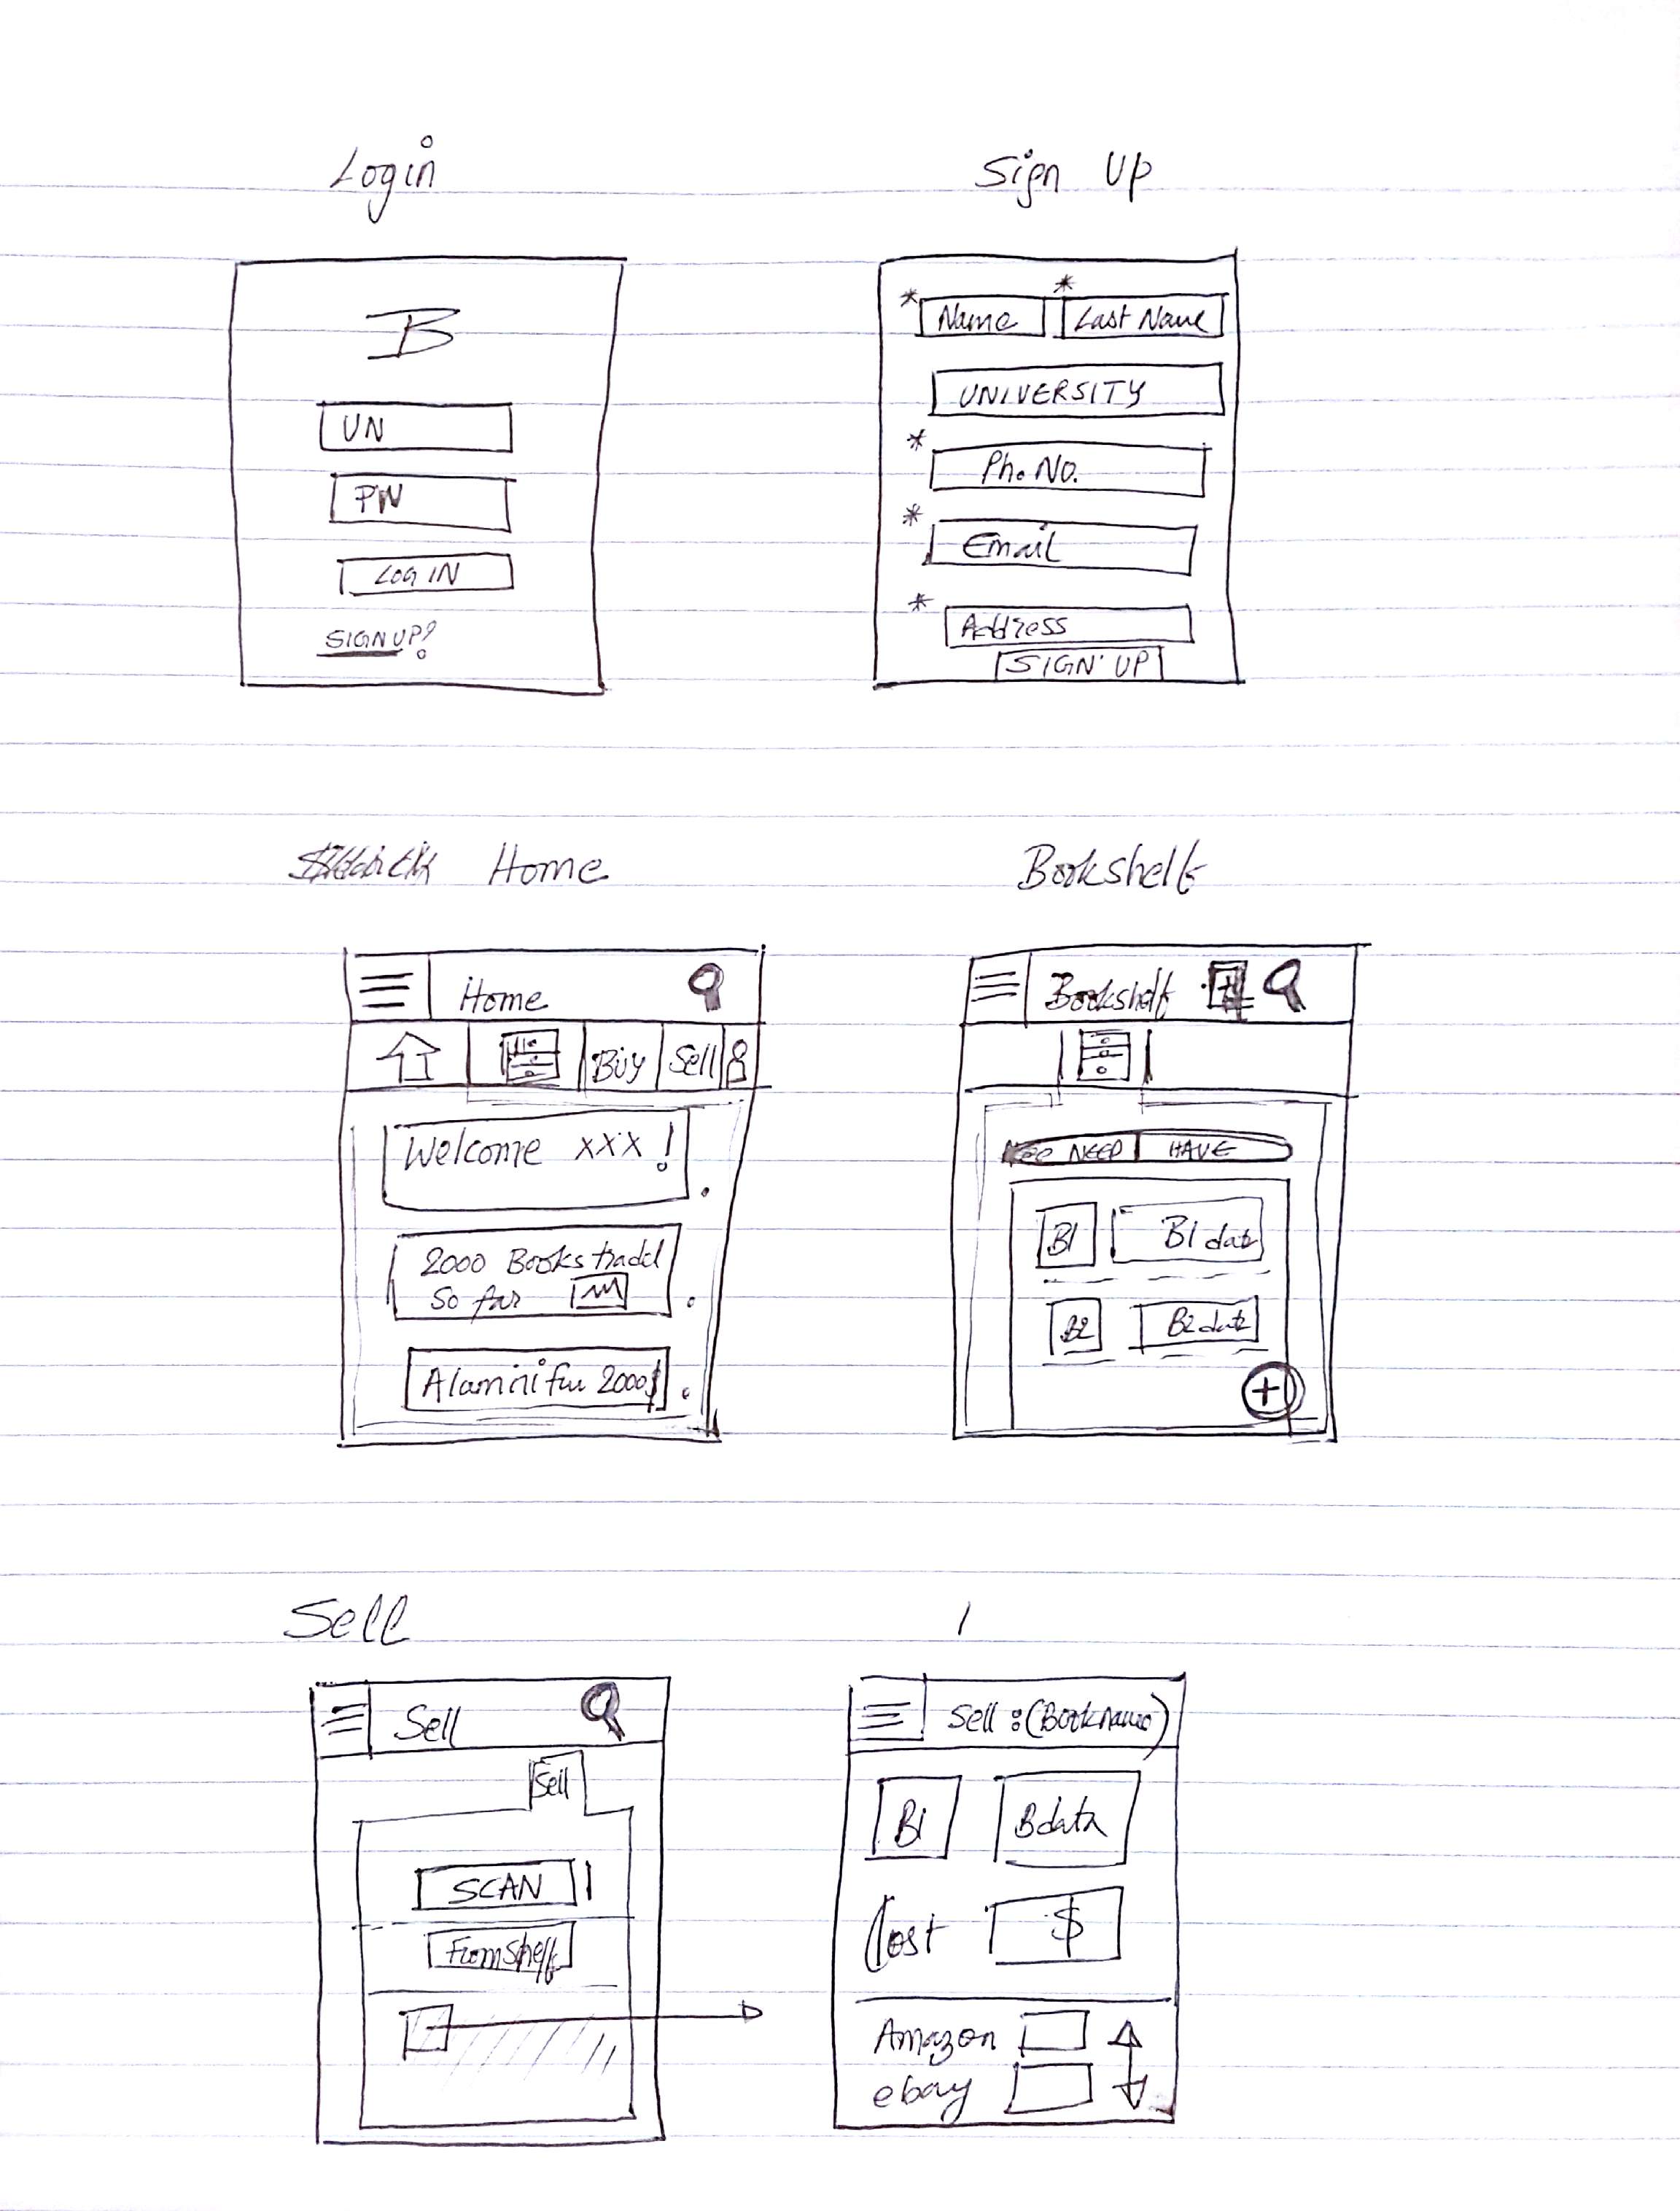 Login
Sign Up
B
UN
PW
LOG IN
SIGN UP!
* Name * Last Name
UNIVERSITY
* Ph. No.
* Email
* Address
SIGN UP
Home
Bookshelf
Home
Buy Sell
Welcome xxx !
2000 Books tradd
So far
2000$
Bookshelf
NEED HAVE
B1 B1 data
B2 B2 data
+
Sell
1
Sell
Sell
SCAN
From Shelf
Sell : (Bookname)
B1 Bdata
Cost $
Amazon
ebay